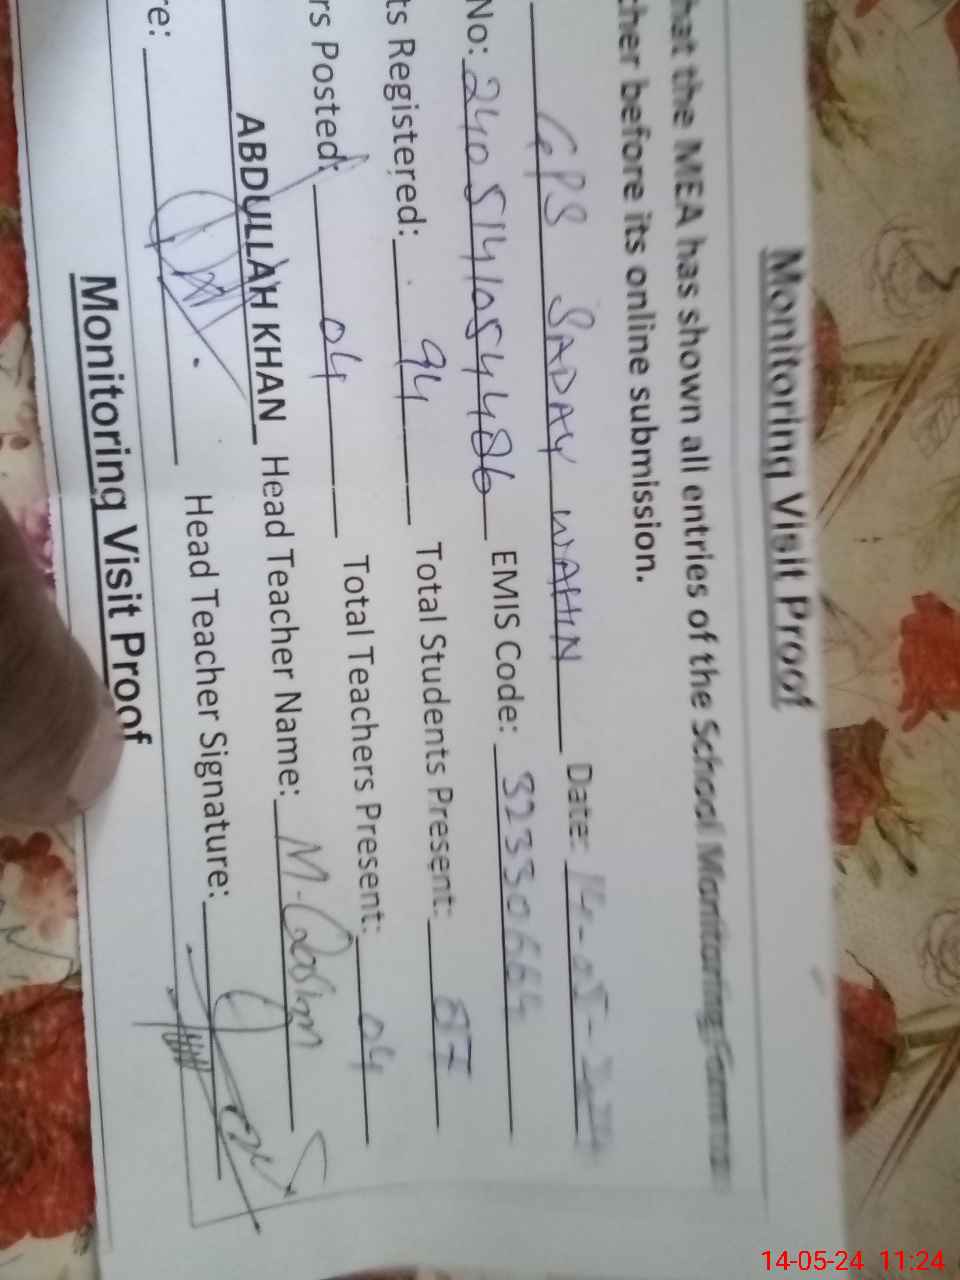 Monitoring Visit Proof
hat the MEA has shown all entries of the School Monitoring Forms
cher before its online submission.
GPS SADAY WAHN Date: 14-05-2024
No: 240514105 44486 EMIS Code: 32330664
ts Registered: 94 Total Students Present: 87
rs Posted: 04 Total Teachers Present: 04
ABDULLAH KHAN Head Teacher Name: M. Qasim
re: Head Teacher Signature:
Monitoring Visit Proof
14-05-24 11:24